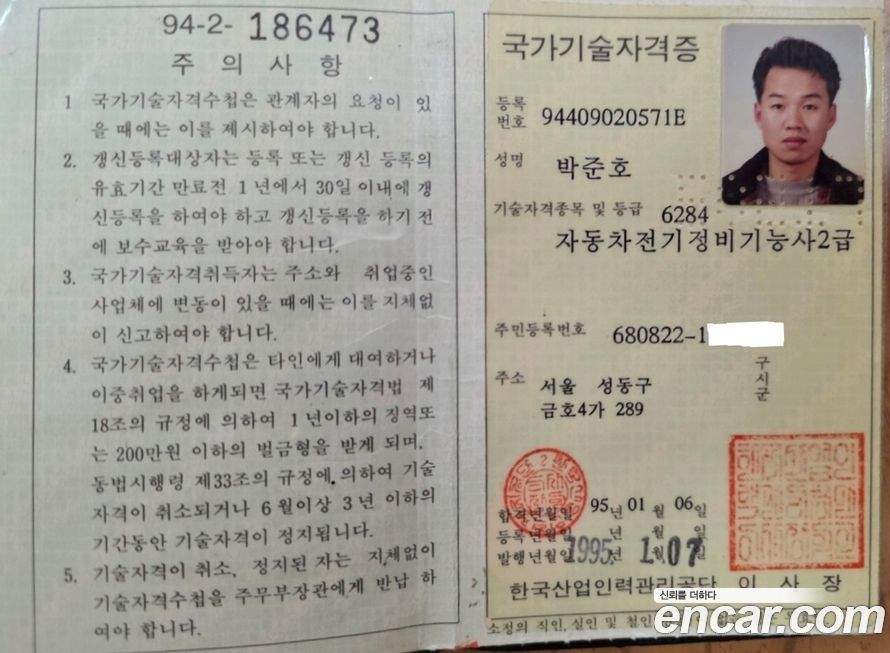 94-2- 186473
주 의 사 항
1 국가기술자격수첩은 관계자의 요청이 있
을 때에는 이를 제시하여야 합니다.
2. 갱신등록대상자는 등록 또는 갱신 등록의
유효기간 만료전 1년에서 30일 이내에 갱
신등록을 하여야 하고 갱신등록을 하기 전
에 보수교육을 받아야 합니다.
3. 국가기술자격취득자는 주소와 취업중인
사업체에 변동이 있을 때에는 이를 지체없
이 신고하여야 합니다.
4. 국가기술자격수첩은 타인에게 대여하거나
이중취업을 하게되면 국가기술자격법 제
18조의 규정에 의하여 1년이하의 징역또
는 200만원 이하의 벌금형을 받게 되며,
동법시행령 제33조의 규정에 의하여 기술
자격이 취소되거나 6월이상 3년 이하의
기간동안 기술자격이 정지됩니다.
5. 기술자격이 취소, 정지된 자는 지체없이
기술자격수첩을 주무부장관에게 반납 하
여야 합니다.
국가기술자격증
등록
번호 94409020571E
성명 박준호
기술자격종목 및 등급 6284
자동차전기정비기능사2급
주민등록번호 680822-1
주소 서울 성동구
금호4가 289
구
시
군
합격년월일 95년 01 월 06일
등록년월일 년 월 일
발행년월일 1995년 1월 07일
한국산업인력관리공단 이 사 장
신뢰를 더하다
encar.com
소정의 직인, 실인 및 철인